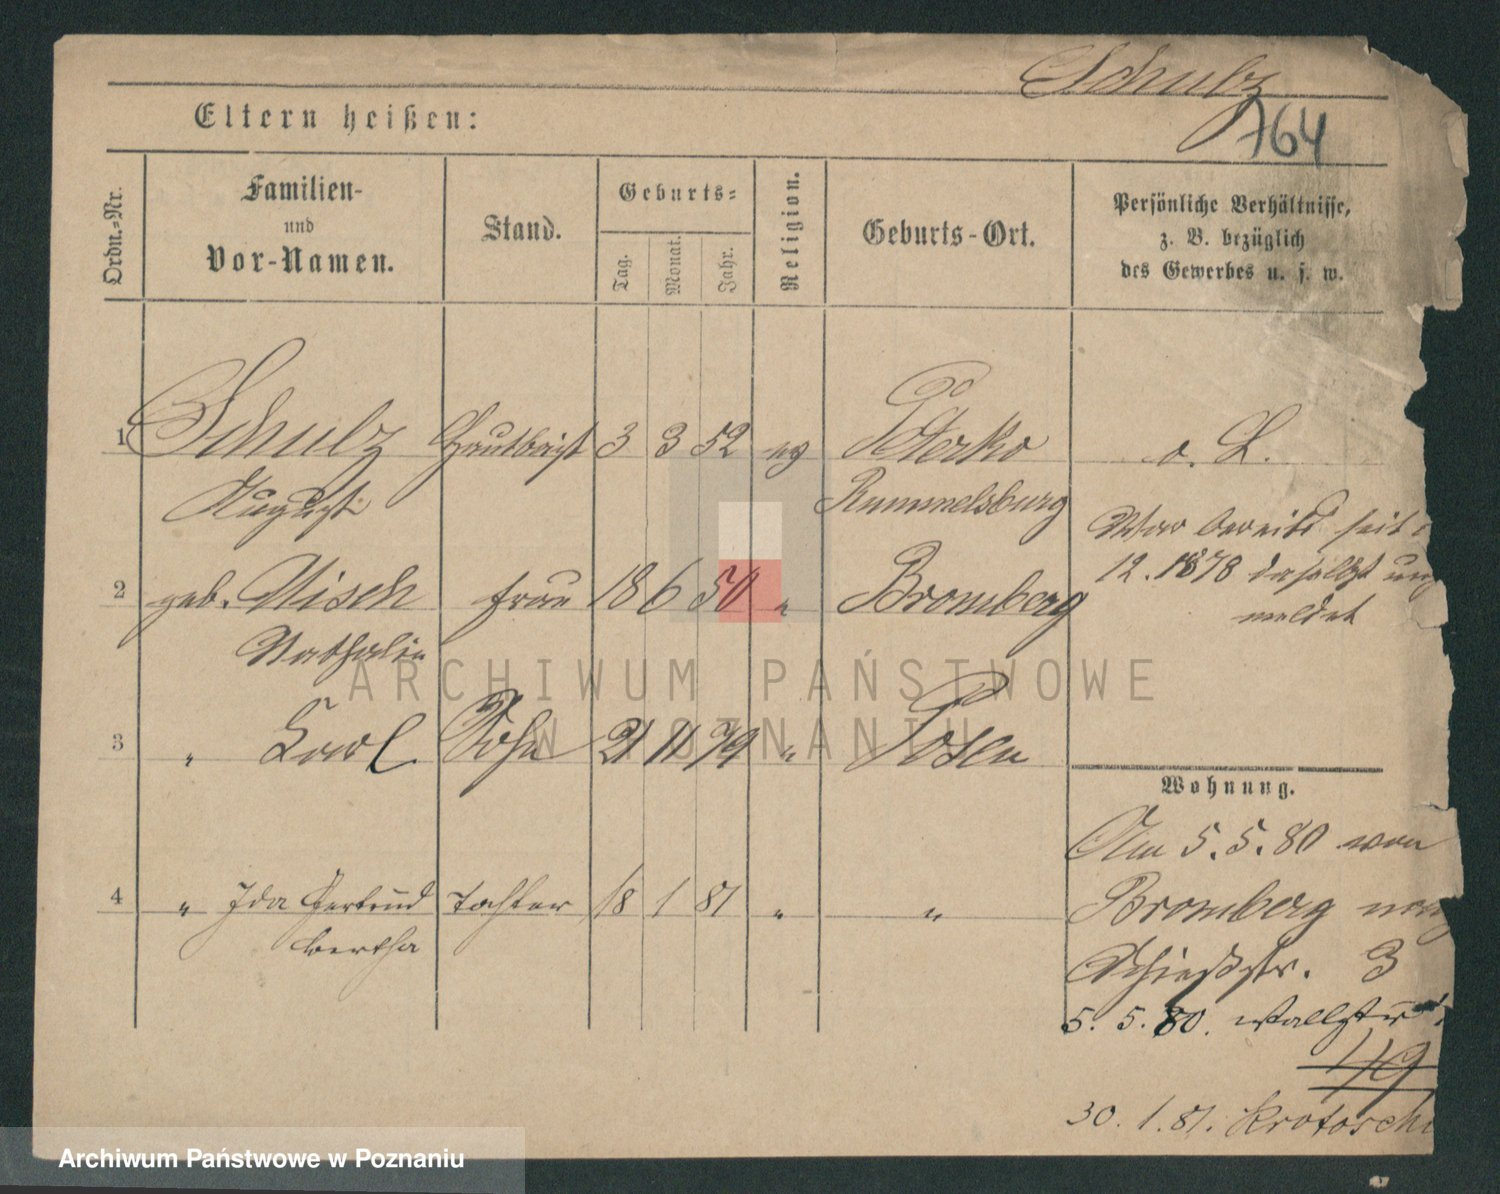 Schulz
764
Eltern heißen:
Ordn.-Nr.
Familien-
und
Vor-Namen.
Stand.
Geburts-
Tag.
Monat.
Jahr.
Religion.
Geburts-Ort.
Persönliche Verhältnisse,
z. B. bezüglich
des Gewerbes u. s. w.
1 Schulz 3 3 52 ev Peterko o. L.
August Rummelsburg
War bereits seit
2 geb. Nisch Frau 18 6 50 " Bromberg 12. 1878 daselbst
Nathalie meldet
3 " Carl Sohn 21 11 79 " Posen
Wohnung.
Am 5. 5. 80 von
4 " Ida Gertrud Tochter 18 1 81 " " Bromberg
Bertha
Schießstr. 3
5. 5. 80. Wallstr
49
30. 1. 81. Krotoschi
ARCHIWUM PAŃSTWOWE
W POZNANIU
Archiwum Państwowe w Poznaniu